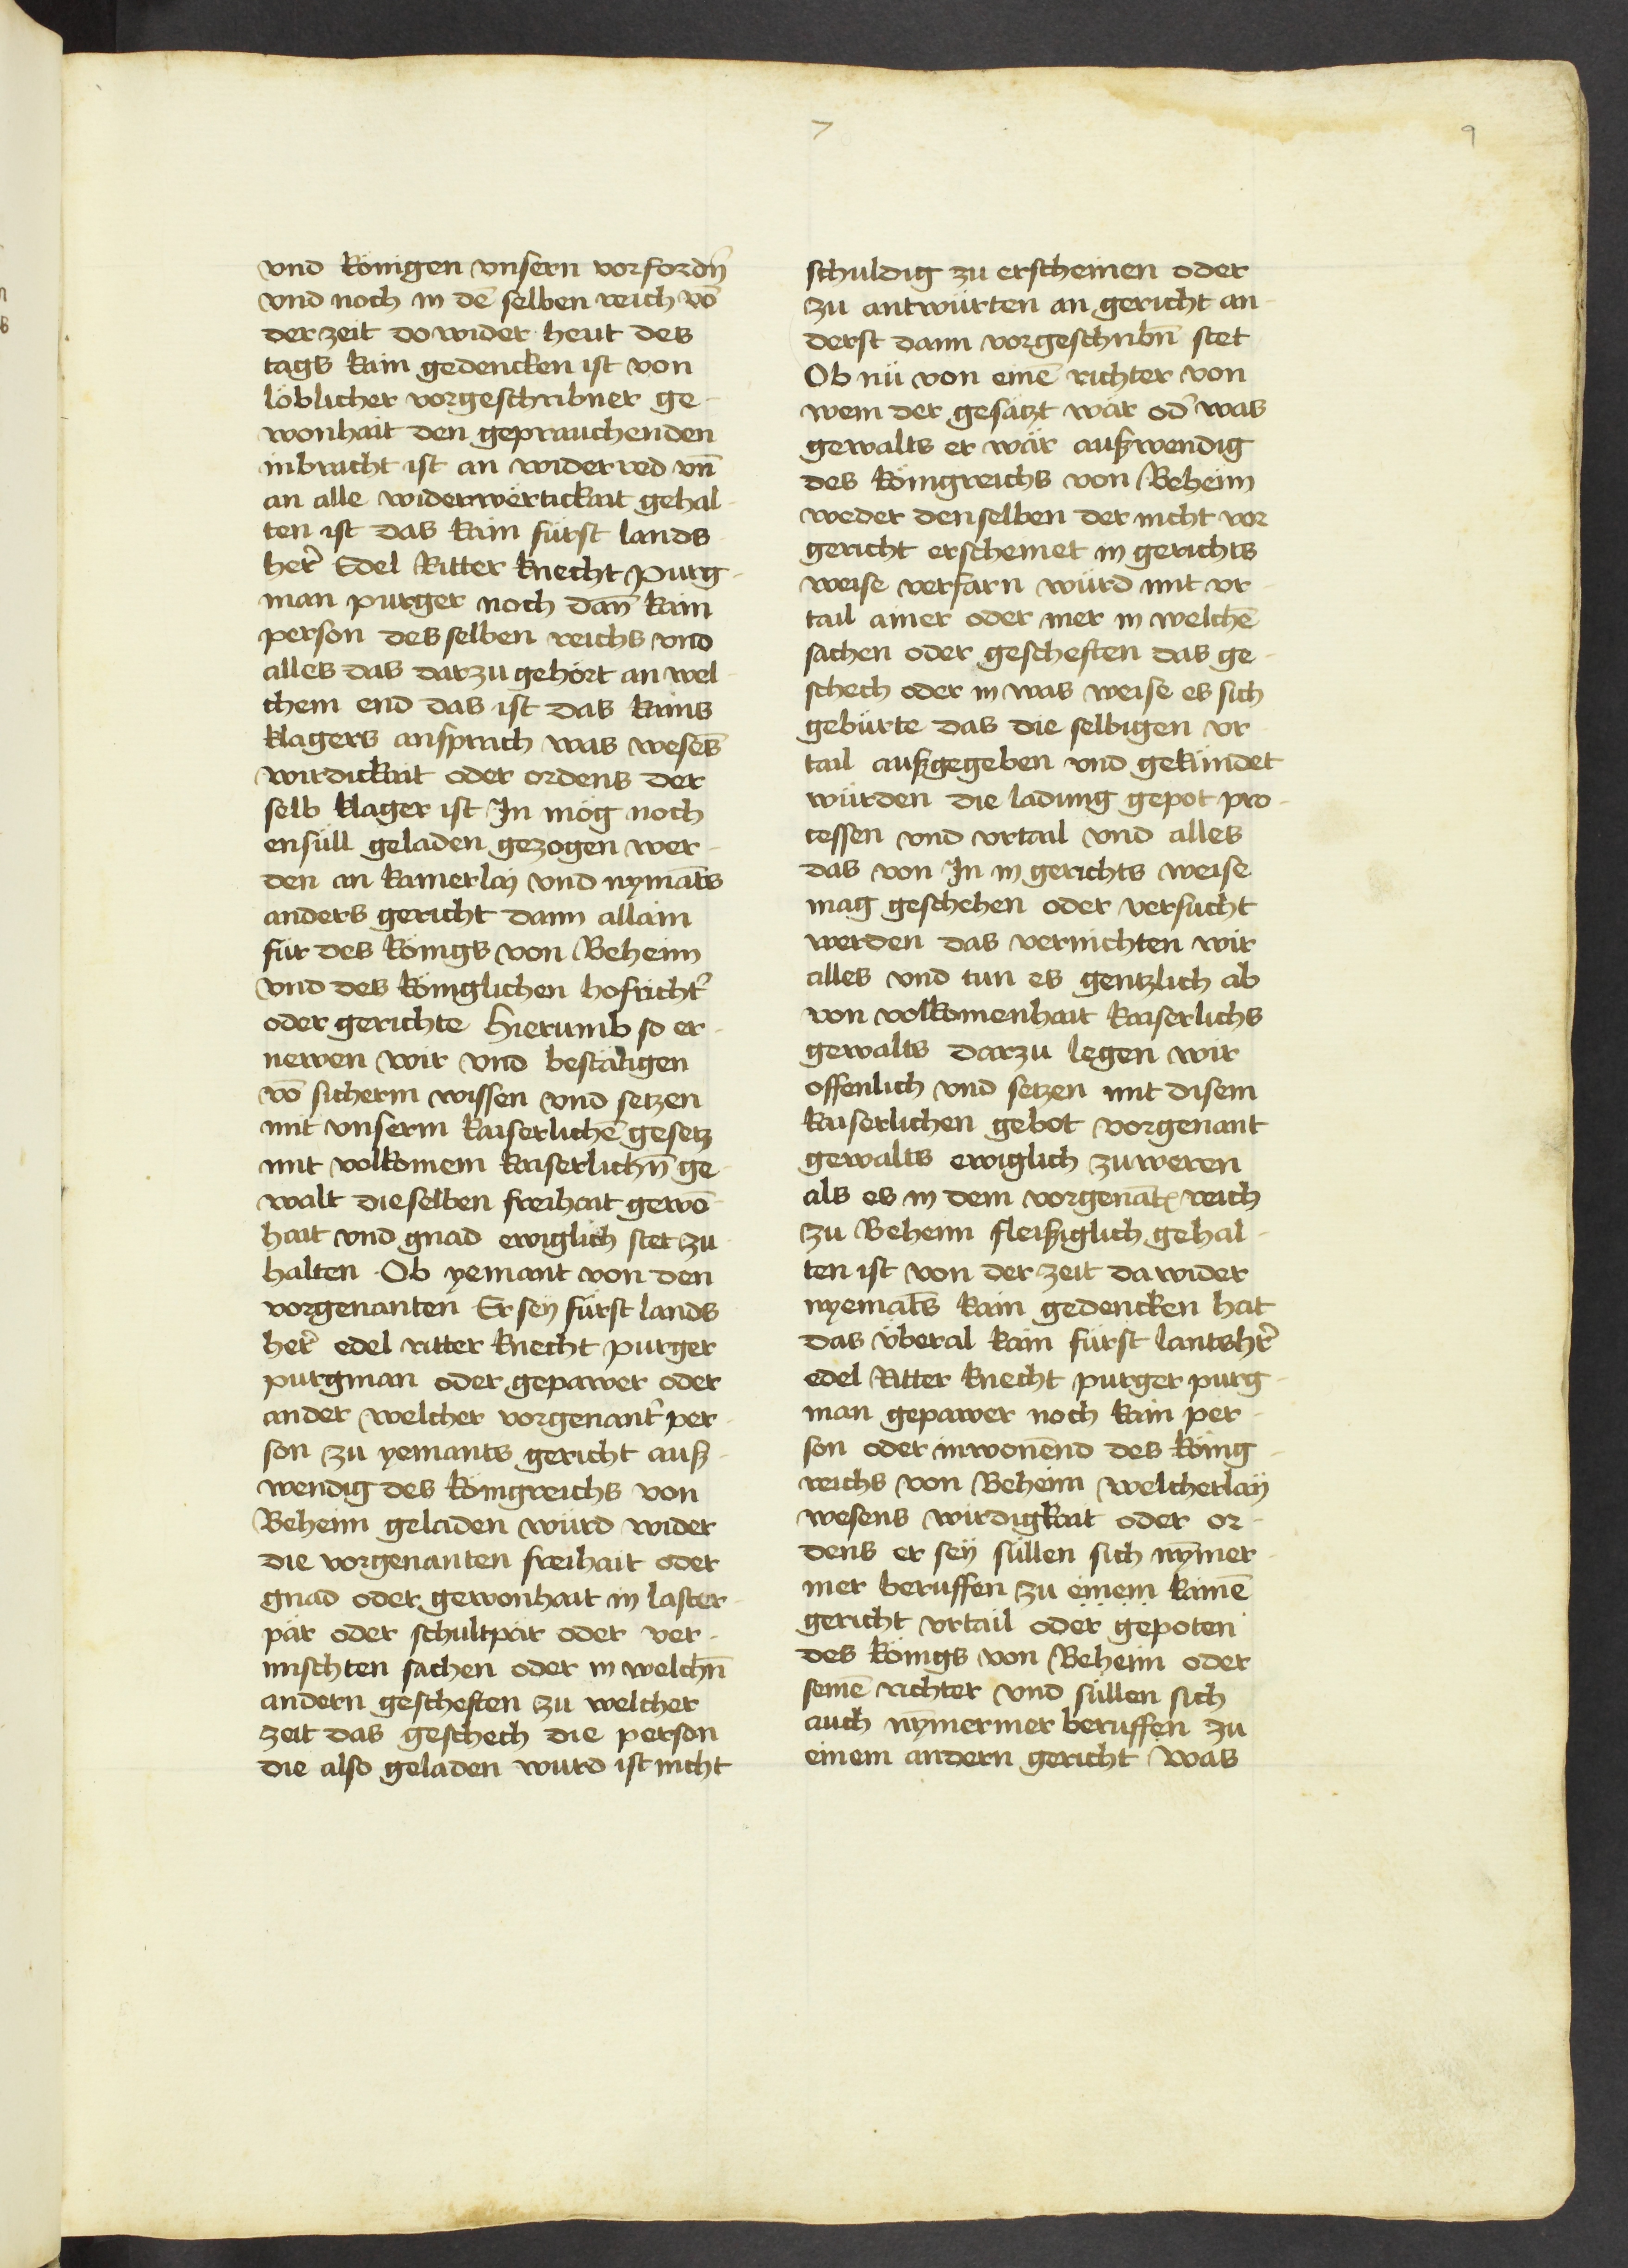 7
9
vnd königen vnsern vorfordn̄
vnd noch in dē selben reich vō
der zeit do wider heut des
tags kain gedencken ist von
löblicher vorgeschribner ge-
wonhait den geprauchenden
inbracht ist an widerred vn̄
an alle widerwërtickait gehal-
ten ist das kain fürst lands
her̄ Edel Ritter knecht purg-
man purger noch dan̄ kain
person desselben reichs vnd
alles das darzu gehört an wel-
chem end das ist das kains
klagers ansprach was wesēs
wirdickait oder ordens der
selb klager ist In mög noch
ensüll geladen gezogen wer-
den an kainerlaÿ vnd nymāts
anders gericht dann allain
für des königs von Beheim
vnd des königlichen hofricht̄
oder gerichte Hierumb so er-
newen wir vnd bestätigen
vō sicherm wissen vnd setzen
mit vnserm kaiserlichē gesetz
mit volkomem kaiserlichn̄ ge-
walt dieselben freihait gewō-
hait vnd gnad ewiglich stet zu
halten Ob yemant von den
vorgenanten Er seÿ fürst lands
her̄ edel ritter knecht purger
purgman oder gepawer oder
ander welcher vorgenant̄ per-
son zu yemants gericht auß-
wendig des königreichs von
Beheim geladen würd wider
die vorgenanten freihait oder
gnad oder gewonhait in laster-
pär oder schultpär oder ver-
mischten sachen oder in welchn̄
andern gescheften zu welcher
zeit das geschech die person
die also geladen wurd ist nicht
schuldig zu erscheinen oder
zu antwürten an gericht an-
derst dann vorgeschribn̄ stet
Ob nü von einē richter von
wem der gesätzt wär od̄ was
gewalts er wär außwendig
des königreichs von Beheim
weder denselben der nicht vor
gericht erscheinet in gerichts
weise verfarn würd mit vr-
tail ainer oder mer in welchē
sachen oder gescheften das ge-
schech oder in was weise es sich
gebürte das die selbigen vr-
tail außgegeben vnd gekündet
würden die ladung gepot pro-
cessen vnd vrtail vnd alles
das von In in gerichts weise
mag geschehen oder versucht
werden das vernichten wir
alles vnd tun es gentzlich ab
von volkomenhait kaiserlichs
gewalts darzu legen wir
offenlich vnd setzen mit disem
kaiserlichen gebot vorgenant
gewalts ewiglich zuweren
als es in dem vorgenāt̄ reich
zu Beheim fleißiglich gehal-
ten ist von der zeit da wider
nyemāts kain gedencken hat
das überal kain fürst lantshr̄
edel Ritter knecht purger purg-
man gepawer noch kain per-
son oder inwonēnd des köng-
reichs von Beheim welcherlaÿ
wesens wirdigkait oder or-
dens er seÿ süllen sich nȳmer-
mer beruffen zu einem kainē
gericht vrtail oder gepoten
des königs von Beheim oder
seinē richter vnd süllen sich
auch nȳmermer beruffen zu
einem andern gericht Was